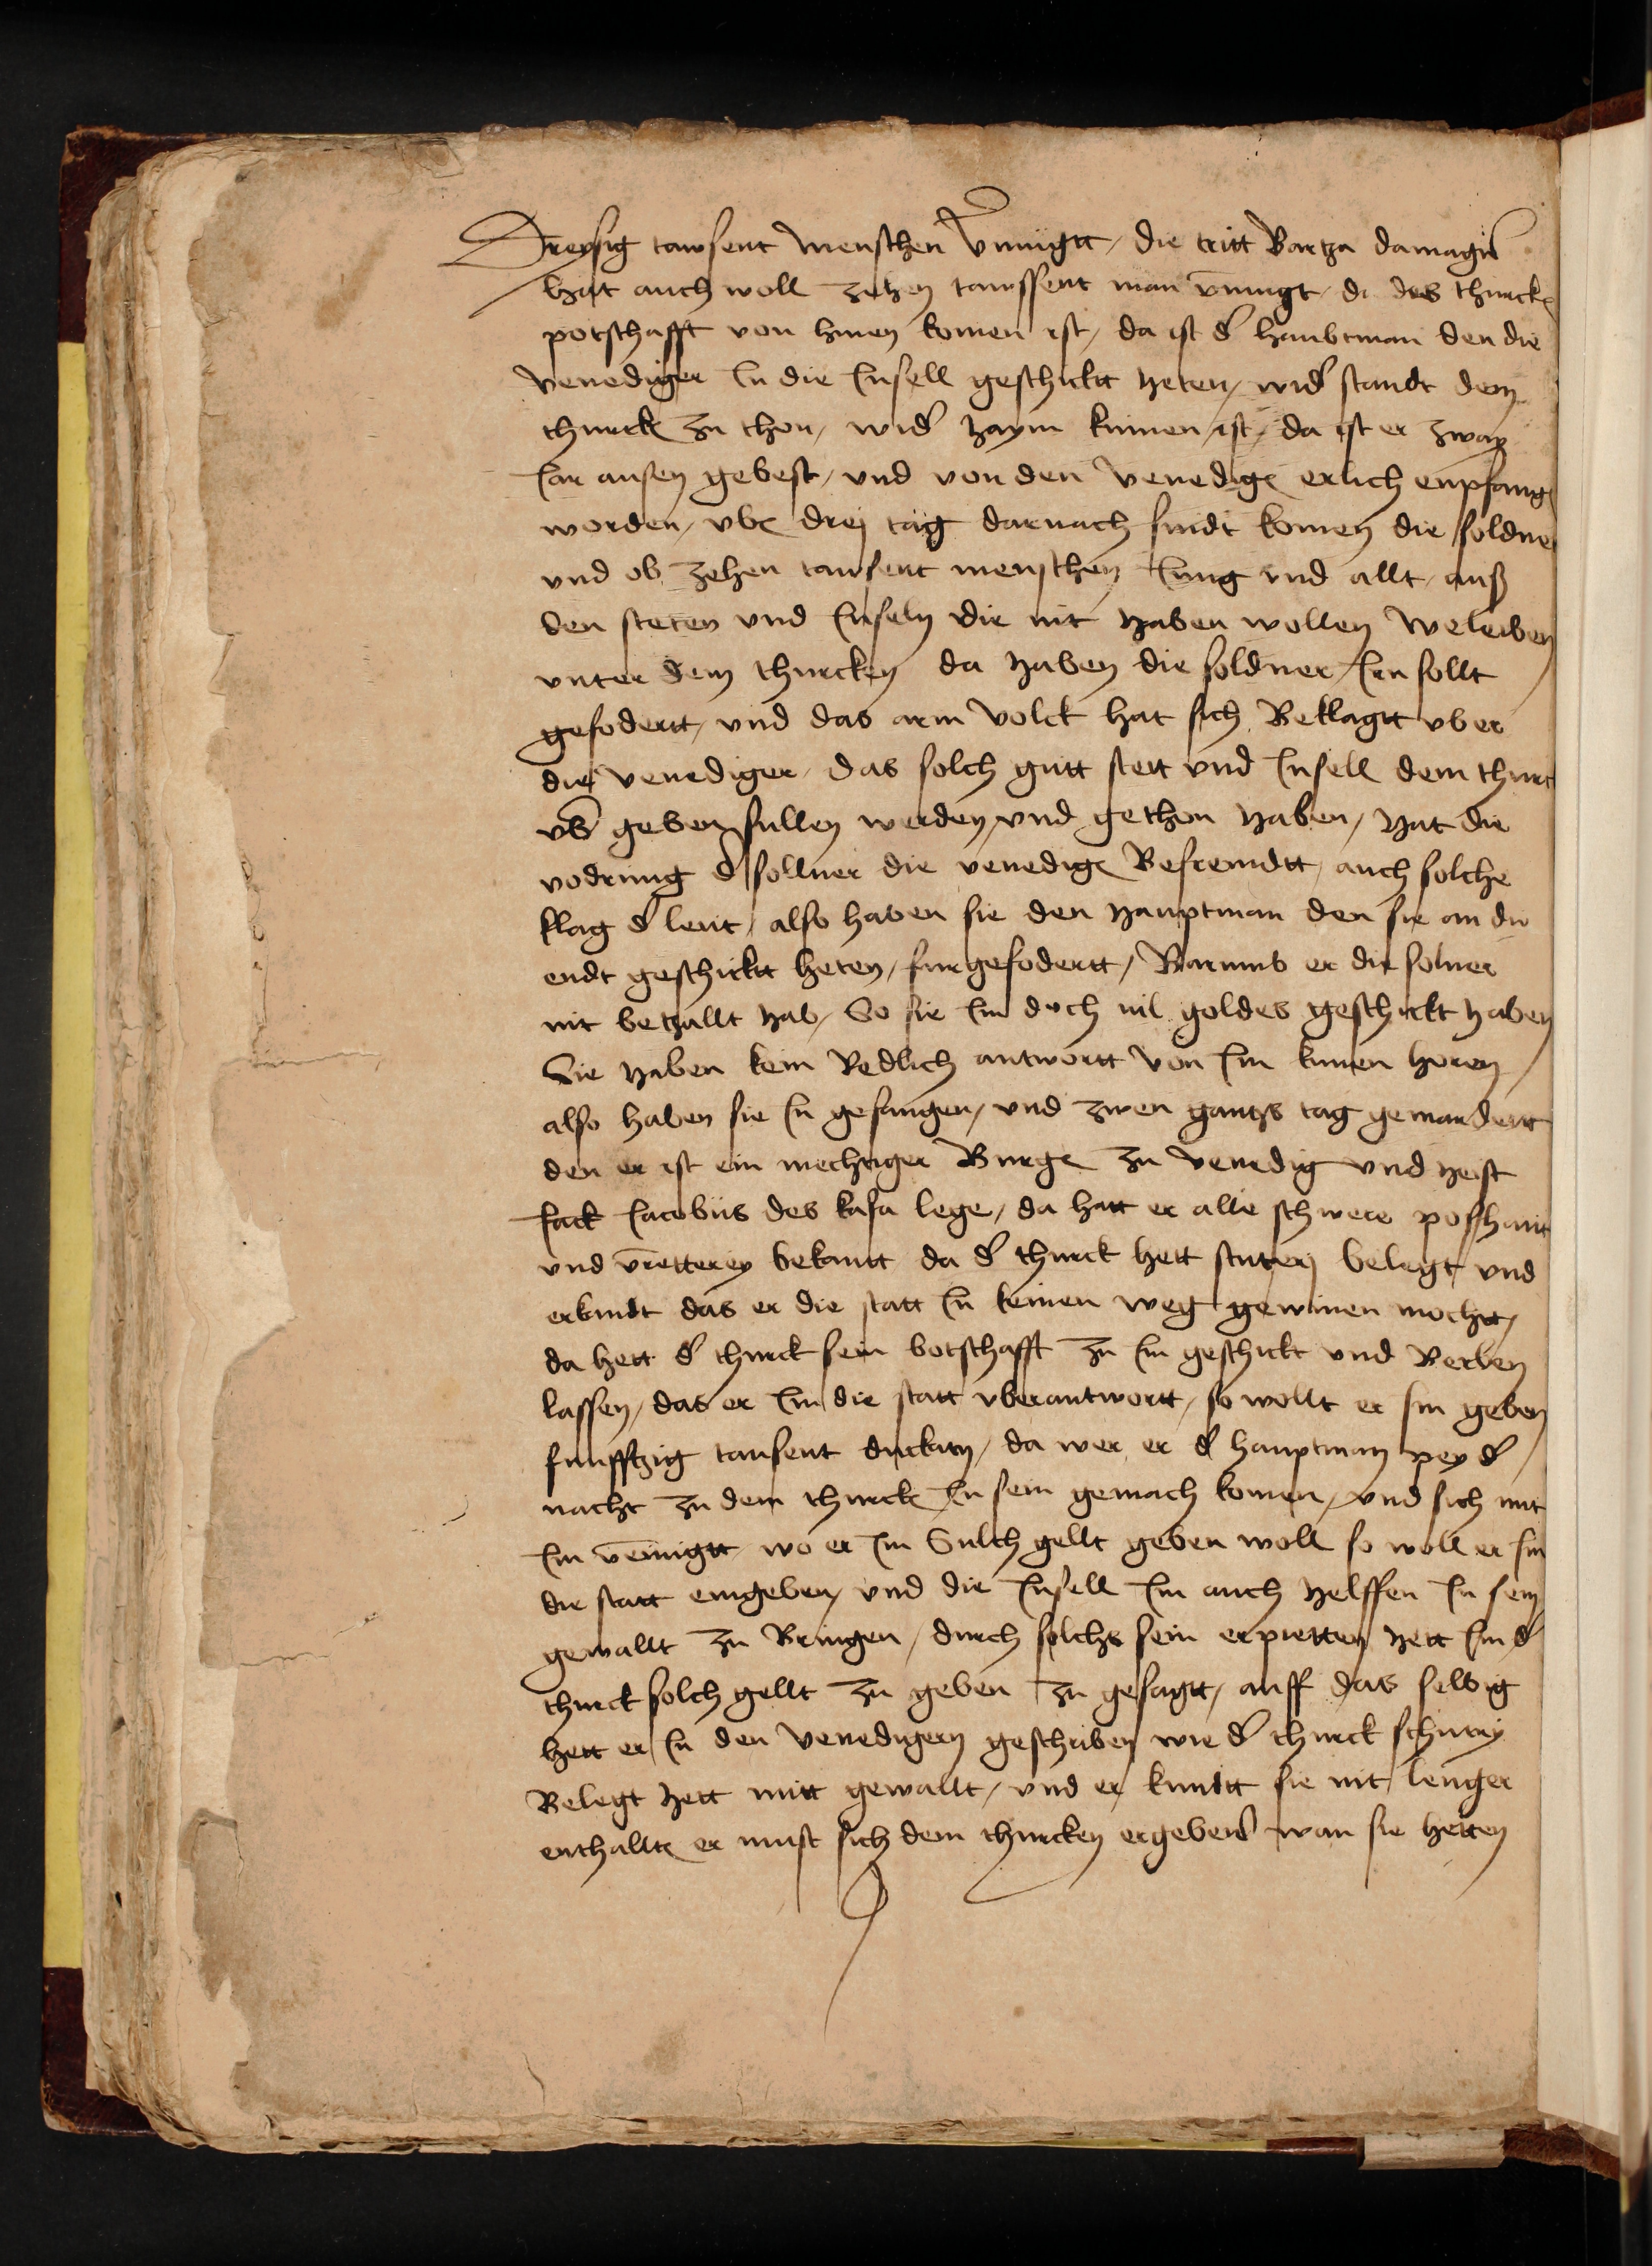 Dreysig tawsent menschen v̄mügtt / die tritt Bartza damagil
hat auch woll zehen tawssent man v̄mugt / di des thurck
potschafft von hinen komen ist / da ist d' haubtman den die
venediger In die Insell geschicktt heten / wid' standt dem
thurck zu thon / wid' haym kumen ist / da ist er zway
Iar ausen gebest / vnd von den venedig' erlich enpfang
worden / vber drej tag darnach sindt komen die soldner
vnd ob zehen tausent menschen Iung vnd allt / auß
den steten vnd Inseln die nit haben wollen beleiben
vnter dem thurcken da haben die soldner Irn sollt
gefodertt / vnd das arm volck hat sich Beklagtt vber
die venediger / das solch gutt stett vnd Insell dem thurck
vb' geben sullen werden / vnd gethon haben / hat die
vodrung d' sollner die venedig' Befremdtt / auch solche
klag d' leut / also haben sie den hauptman den sie an die
endt geschicktt heten / furgefodertt / Warumb er die solner
nit betzallt hab / So sie Im doch vil goldes geschickt haben
Sie haben kein Redlich antwortt von Im kunen horen /
also haben sie In gefangen / vnd zwen gantzs tag gemardertt
den er ist ein mechtiger Burger zu venedig vnd heist
Iack Iacobus des kasa lege / da hatt er alle schwere poshaitt
vnd v̄retterey bekantt da d' thurck hett scuterj belegt / vnd
erkandt das er die statt In keinen weg gewinen mochtt /
da hett d' thurck sein botschafft zu Im geschickt vnd Werben
lassen / das er Im die statt vberantwortt / so wollt er Im geben
funfftzig tausent duckaten / da wer er d' hauptman pey d'
nacht zu dem thurck In sein gemach komen / vnd sich mit
Im v̄einigtt / wo er Im Sulch gellt geben woll so woll er Im
die statt eingeben / vnd die Insell Im auch helffen In sein
gewallt zu Bringen / durch solchs sein erpietten hett Im d'
thurck solch gellt zu geben zu gesagtt / auff das selbig
hett er In den venedigern geschriben wie d' thurck schutrij
Belegt hett mitt gewallt / vnd er kundtt sie nit lenger
enthallten er must sich dem thurcken ergeben wan sie hetten